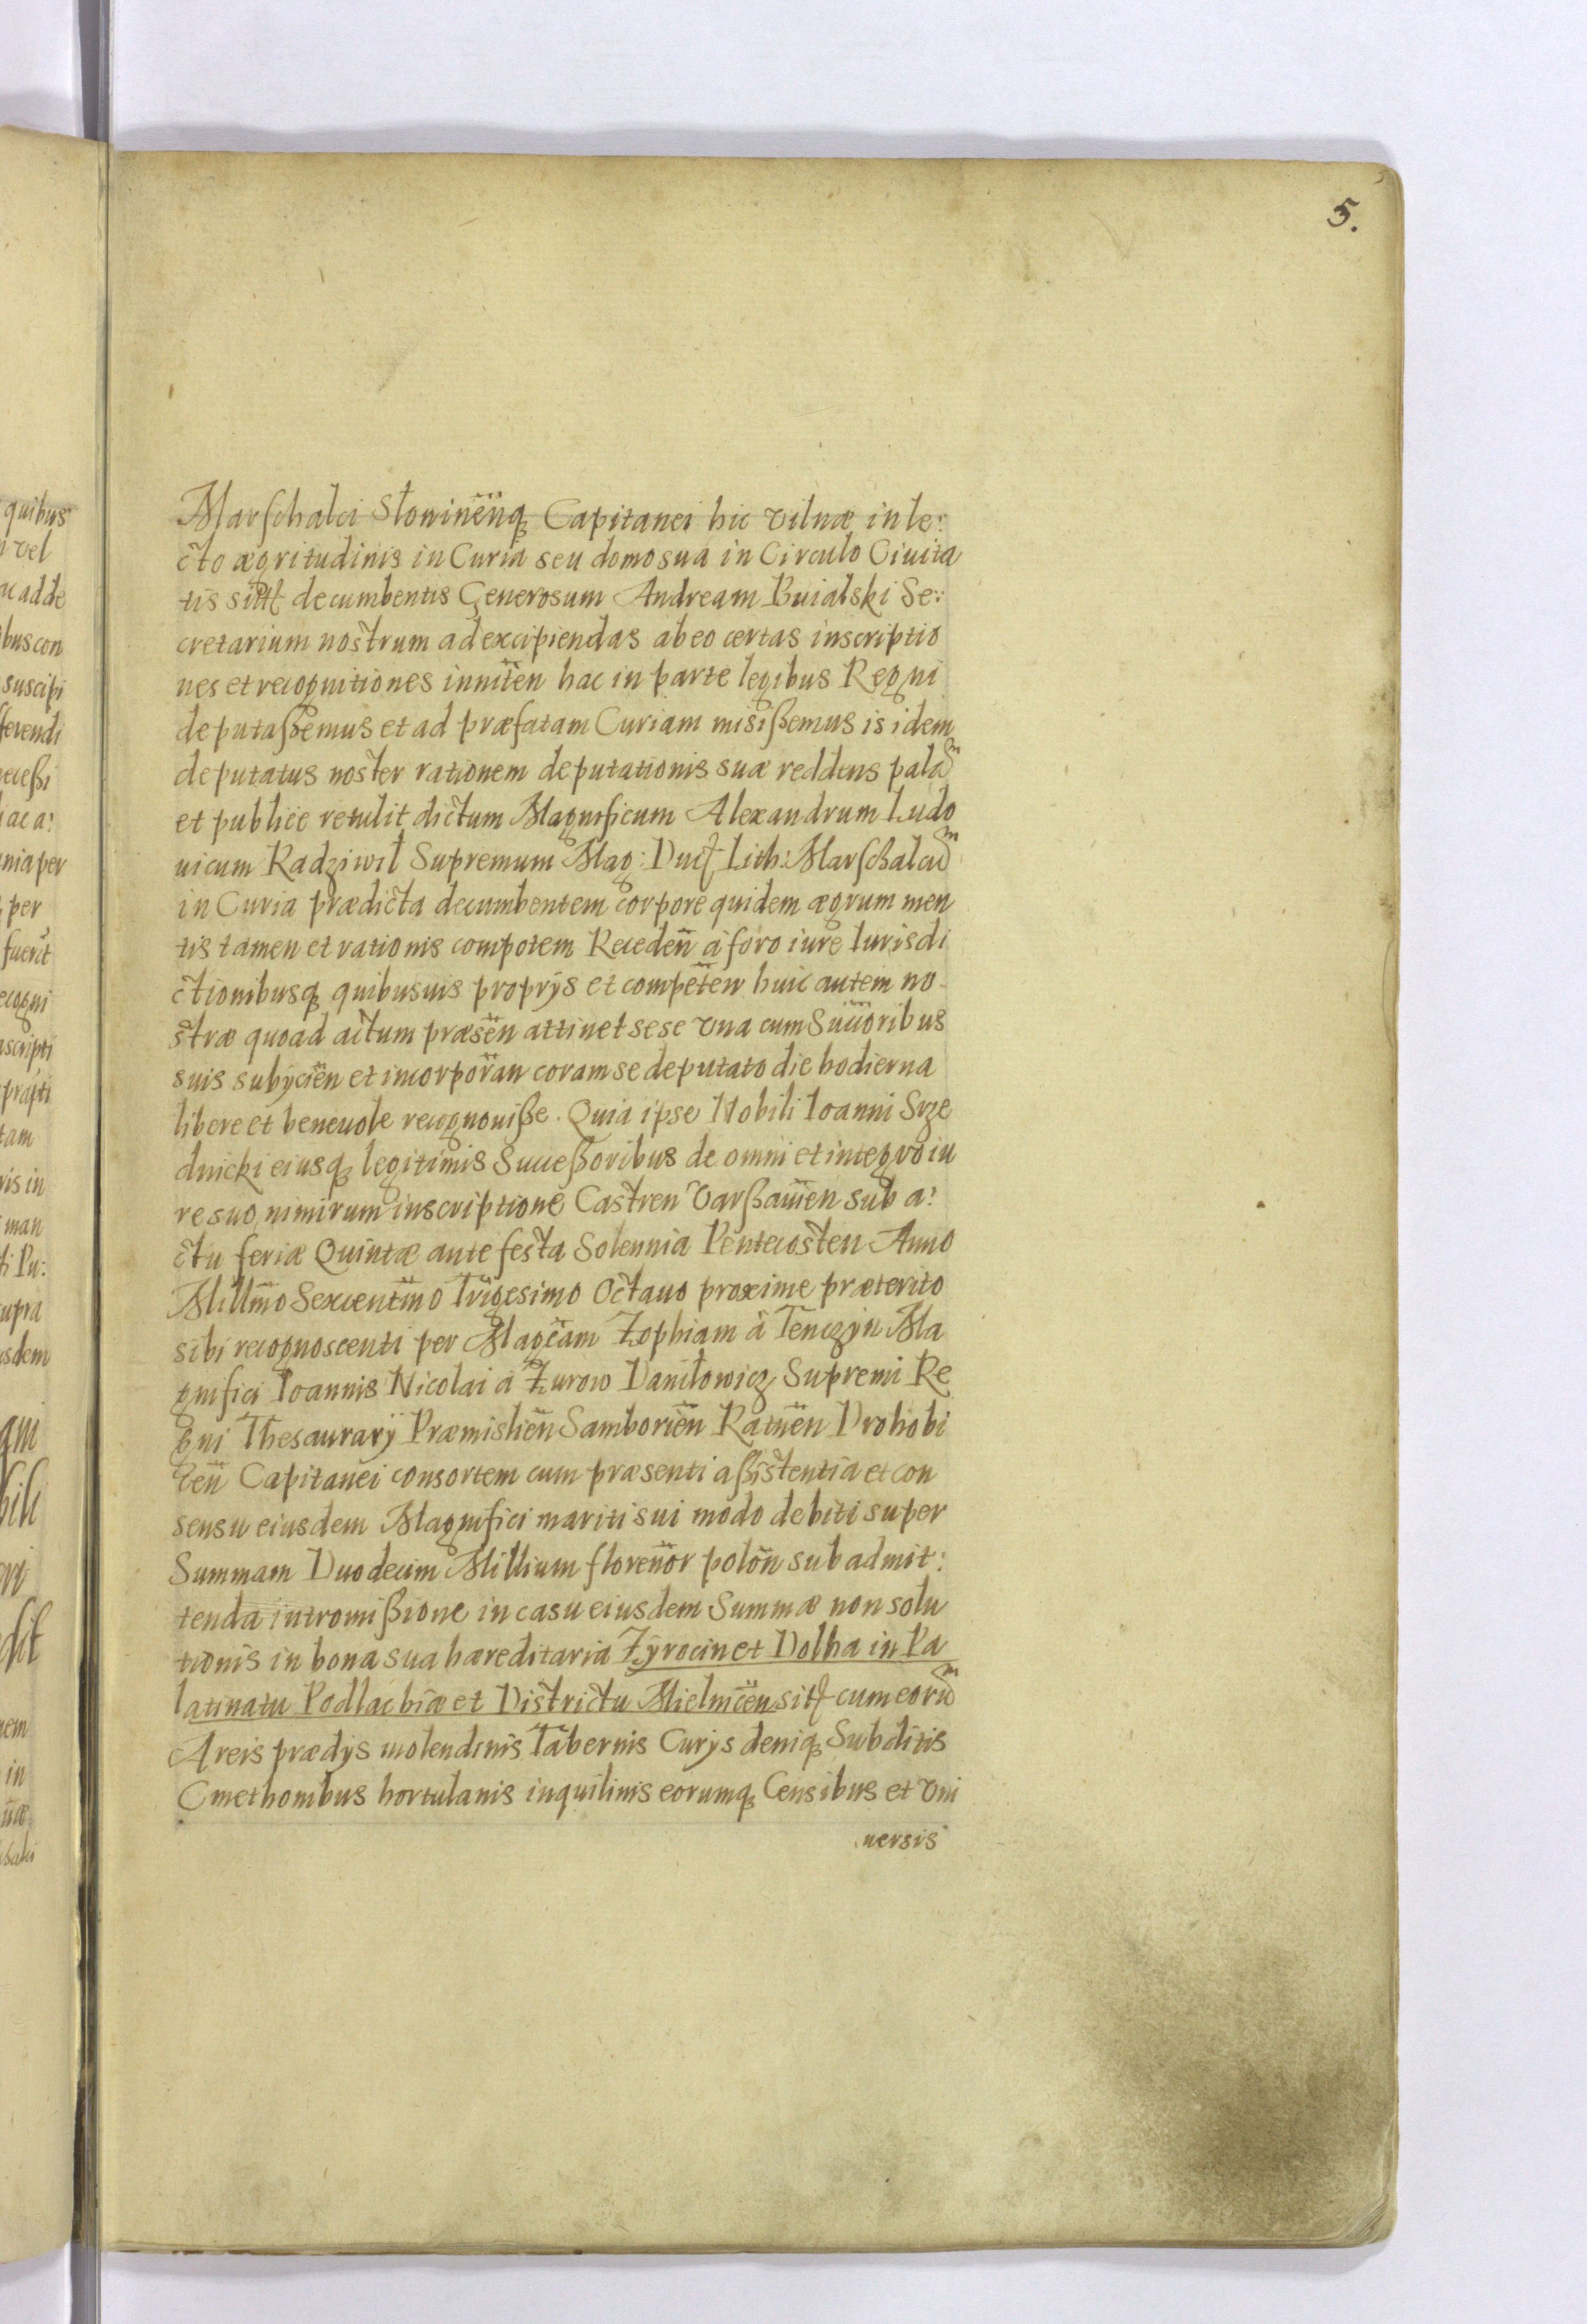 5.
Marschalci Słonimēnq̃ Capitanei hic Vilnæ in le:
cto ægritudinis in Curia seu domo sua in Circulo Ciuita
tis decumbentis Generosum Andream Buialski Se:
cretarium nostrum ad excipiendas ab eo certas inscriptio
nes et recognitiones inniten̄ hac in parte legibus Regni
deputaßemus et ad præfatam Curiam misißemus is idem
deputatus noster rationem deputationis suæ reddens palam
et publice retulit dictum Magnificum Alexandrum Ludo
uicum Radziwił Supremum Mag: Duc. Lith: Marschalcum
in Curia prædicta decumbentem corpore quidem ægrum men
tis tamen et rationis compotem Receden̄ à foro iure Iurisdi
ctionibusq̃ quibusuis proprÿs et competen̄ huic autem no-
stræ quoad actum præsen̄ attinet sese vna cum Succoribus
suis subÿcien̄ et incorporan̄ coram se deputato die hodierna
libere et beneuole recognouiße. Quia ipse Nobili Ioanni Srze
dnicki eiusq̃ legitimis Succeßoribus de omni et integro iu
re suo nimirum inscriptione Castren̄ Varßauien̄ sub a:
ctu feriæ Quintæ ante festa Solennia Pentecosten Anno
Millm̄o Sexcentm̄o Trigesimo Octauo proxime præterito
sibi recognoscenti per Magcam Zophiam à Tenczyn Ma
gnifici Ioannis Nicolai à Zurow Daniłowicz Supremi Re
gni Thesaurarÿ Præmislien̄ Samborien̄ Ratnen̄ Drohobi
cen̄ Capitanei consortem cum præsenti aßistentia et con
sensu eiusdem Magnifici mariti sui modo debiti super
Summam Duodecim Millium florenor̄ polon̄ sub admit:
tenda intromißione in casu eiusdem Summæ non solu
tionis in bona sua hæreditaria Zÿrocin et Dolha in Pa
latinatu Podlachiæ et Districtu Mielnicen̄ sit. cum eorum
Areis prædÿs molendinis Tabernis Curÿs deniq̃ Subditis
Cmethonibus hortulanis inquilinis eorumq̃ Censibus et vni
uersis